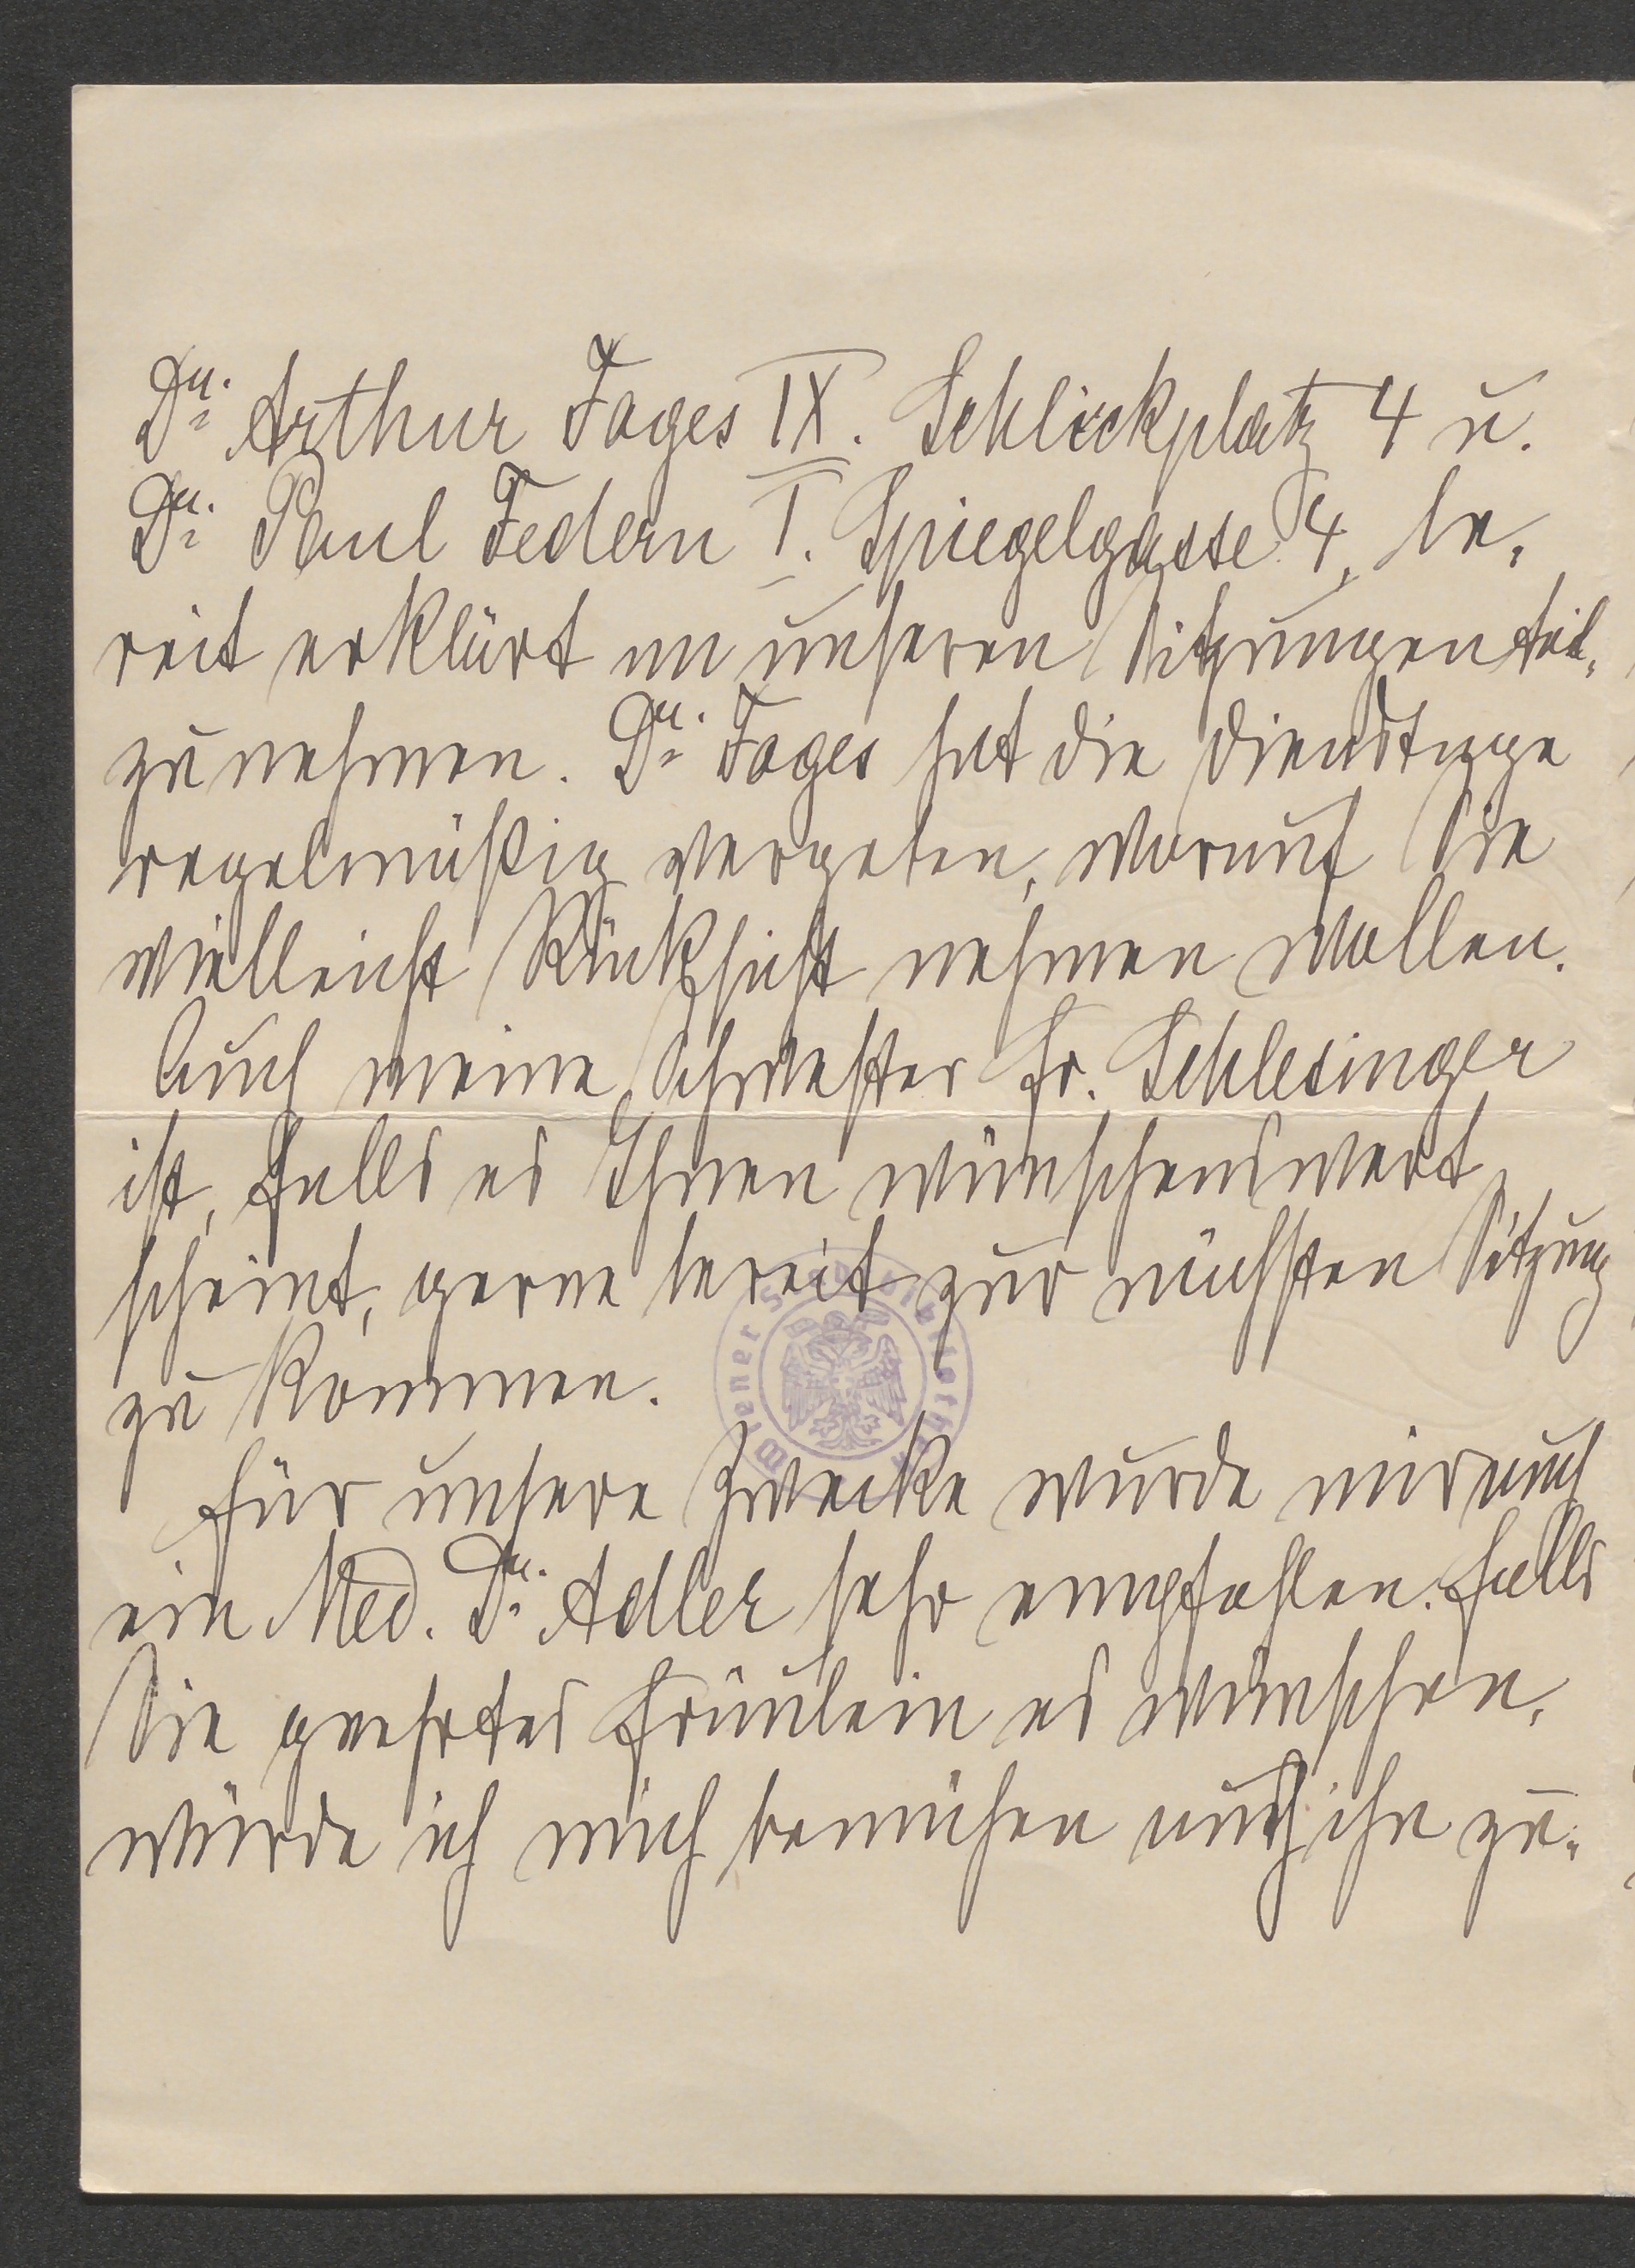 Dr. Arthur Foges IX. Schlickplatz 4 u.
Dr. Paul Federn I. Spiegelgasse 4, be-
reit erklärt an unseren Sitzungen teil-
zunehmen. Dr. Foges hat die Dienstage
regelmäßig vergeben, worauf Sie
vielleicht Rücksicht nehmen wollen.
Auch meine Schwester Fr. Schlesinger
ist, falls es Ihnen wünschenswert
scheint, gerne bereit zur nächsten Sitzung
zu kommen.
Wiener Stadtbibliothek
Für unsere Zwecke wurde mir auch
ein Med. Dr. Adler sehr empfohlen. Falls
Sie geehrtes Fräulein es wünschen,
würde ich mich bemühen auch ihn zu-